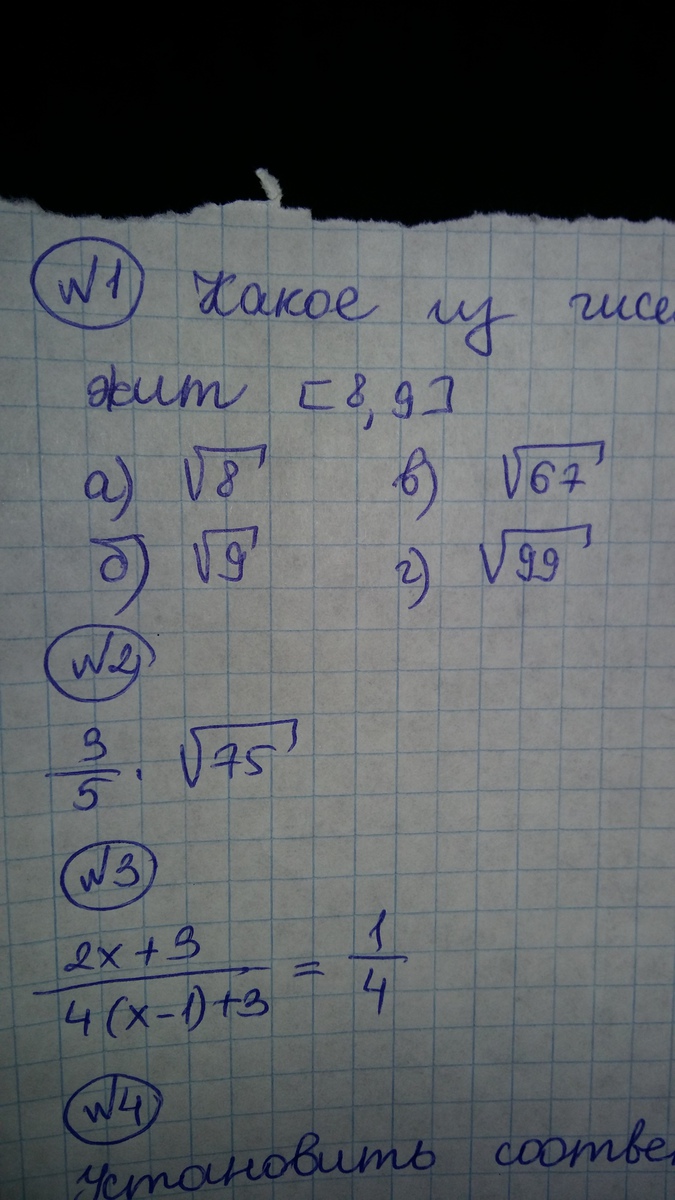 №1 Какое из чисе
жит [8,9]
а) √8 в) √67
б) √9 г) √99
№2
3/5 · √75
№3
(2x+3)/(4(x-1)+3) = 1/4
№4
Установить соответ